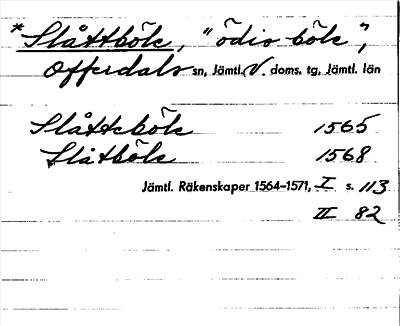 *Slåttböle, "ödis böle",
Offerdals sn, Jämtl. V. doms. tg, Jämtl. län
Slåtteböle 1565
Slåtböle 1568
Jämtl. Räkenskaper 1564–1571, I s. 113
II 82